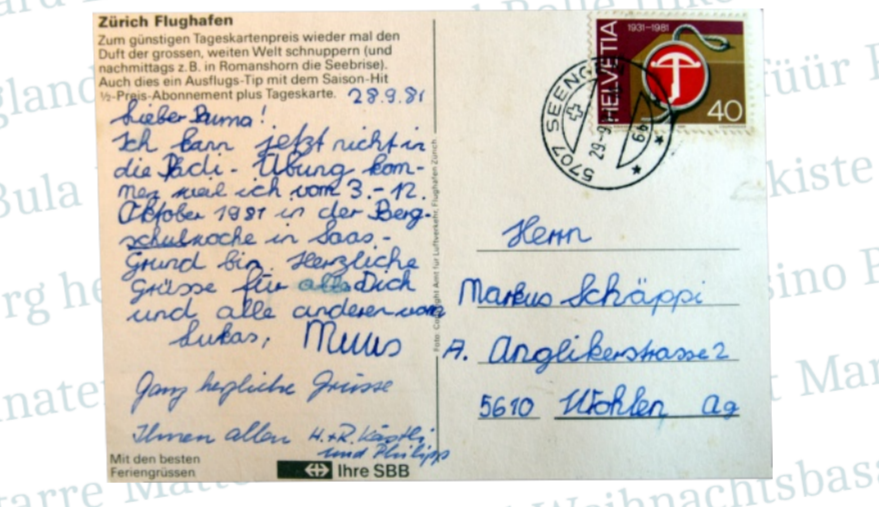 Zürich Flughafen
Zum günstigen Tageskartenpreis wieder mal den
Duft der grossen, weiten Welt schnuppern (und
nachmittags z.B. in Romanshorn die Seebrise).
Auch dies ein Ausflugs-Tip mit dem Saison-Hit
½-Preis-Abonnement plus Tageskarte.
28.9.81
Lieber Puma!
Ich kann jetzt nicht in
die Pädi-Übung kom-
men weil ich vom 3.-12.
Oktober 1981 in der Berg-
schulwoche in Saas-
Grund bin Herzliche
Grüsse für alle Dich
und alle anderen vom
Lukas,
Ganz herzliche Grüsse
Ihnen allen H.+R. Kästli
und Philipp
Mit den besten
Feriengrüssen
Ihre SBB
Foto: Copyright Amt für Luftverkehr, Flughafen Zürich
1931-1981
HELVETIA
40
5707 SEENGEN
29-9
Herrn
Markus Schäppi
A. Anglikerstrasse 2
5610 Wohlen Ag